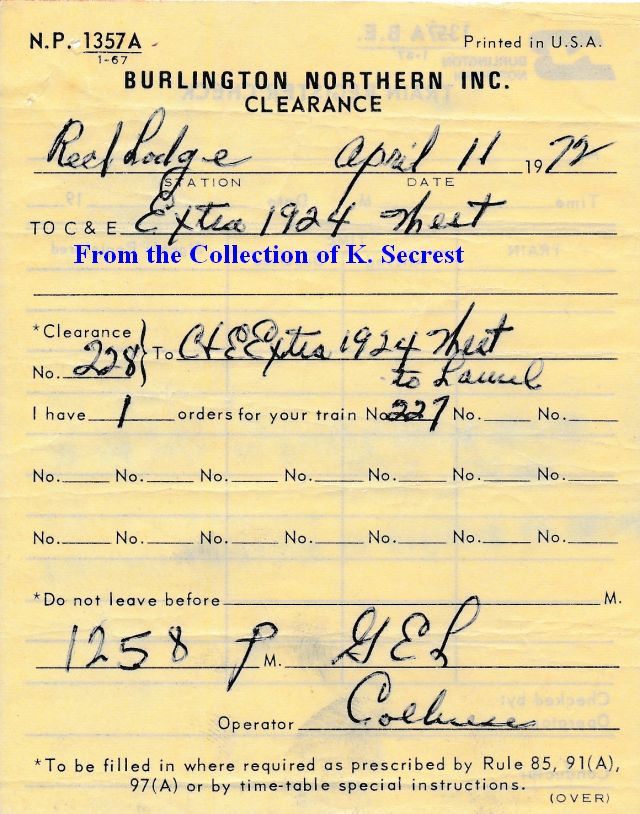 N.P. 1357A
1-67
Printed in U.S.A.
BURLINGTON NORTHERN INC.
CLEARANCE
Red Lodge April 11 1972
STATION DATE
TO C & E Extra 1924 West
From the Collection of K. Secrest
*Clearance
No. 228 To C+E Extra 1924 West
to Laurel
I have 1 orders for your train No. 227 No. No.
No. No. No. No. No. No. No.
No. No. No. No. No. No. No.
*Do not leave before M.
1258 P M. GEL
Operator
*To be filled in where required as prescribed by Rule 85, 91(A),
97(A) or by time-table special instructions.
(OVER)